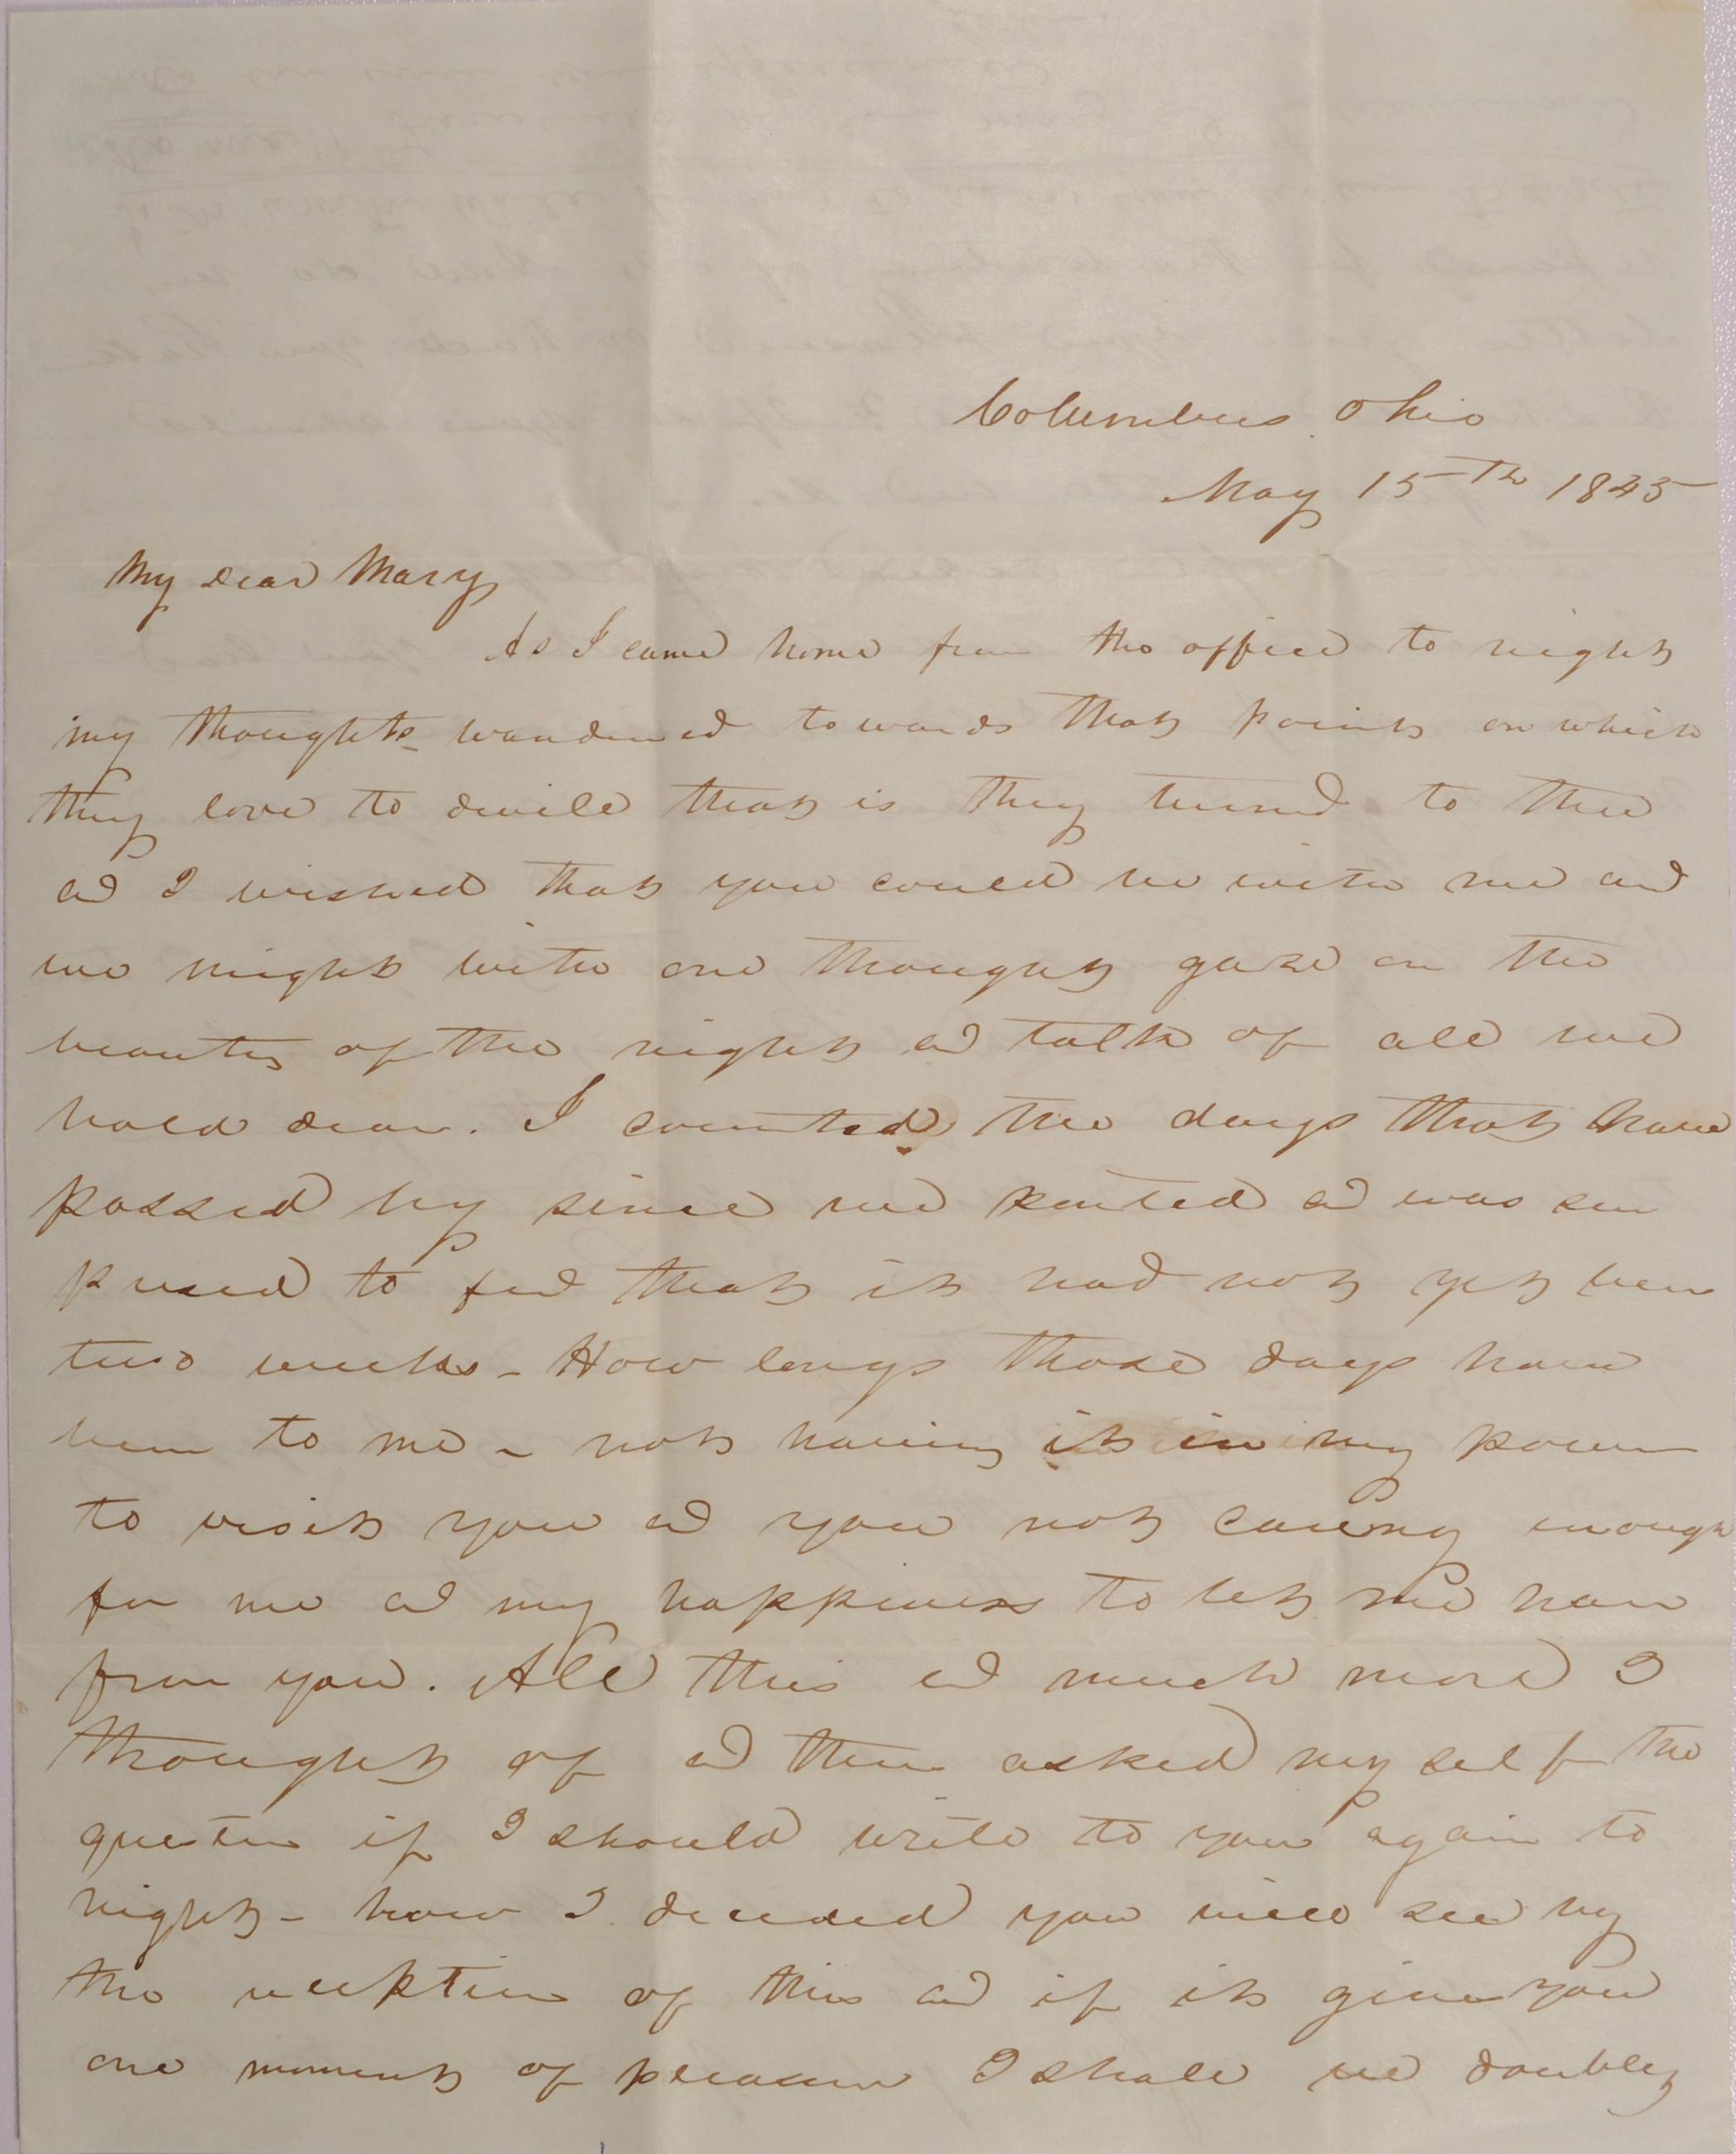 Columbus Ohio
May 15th 1845
My dear Mary
As I came home from the office to night
my thoughts wandered towards that point on which
they love to dwell that is they turned to thee
and I wished that you could be with me and
we might with one thought gaze on the
beauty of the night and talk of all we
hold dear. I counted the days that have
passed by since we parted and was sur
prised to find that it had not yet been
two weeks - How long those days have
been to me - not having it in my power
to visit you and you not caring enough
for me and my happiness to let me hear
from you. All this and much more I
thought of and then asked my self the
question if I should write to you again to
night - how I decided you will see by
the reception of this and if it gives you
one moment of pleasure I shall be doubly